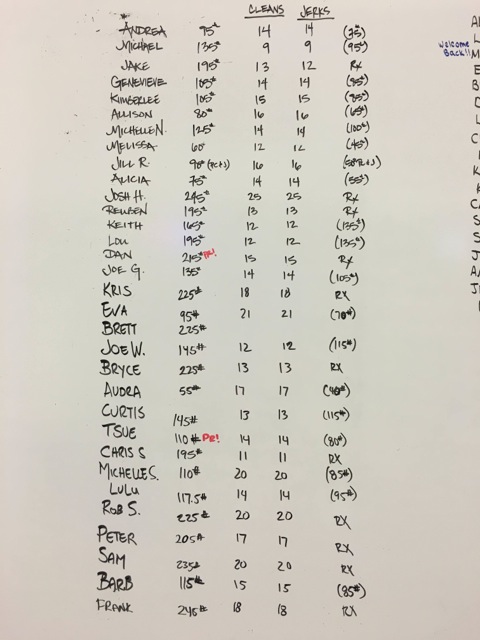 CLEANS JERKS
ANDREA 95# 14 14 (75#)
MICHAEL 135# 9 9 (95#)
JAKE 195# 13 12 RX
GENEVIEVE 105# 14 14 (95#)
KIMBERLEE 105# 15 15 (85#)
ALLISON 80# 16 16 (65#)
MICHELLE N. 125# 14 14 (100#)
MELISSA 60# 12 12 (45#)
JILL R. 90# 16 16
ALICIA 75# 14 14 (55#)
JOSH H. 245# 25 25 RX
REUBEN 195# 13 13 RX
KEITH 165# 12 12 (135#)
LOU 195# 12 12 (135#)
DAN 215# PR! 15 15 RX
JOE G. 135# 14 14 (105#)
KRIS 225# 18 18 RX
EVA 95# 21 21 (70#)
BRETT 225#
JOE W. 145# 12 12 (115#)
BRYCE 225# 13 13 RX
AUDRA 55# 17 17 (40#)
CURTIS 145# 13 13 (115#)
TSUE 110# PR! 14 14 (80#)
CHRIS S 195# 11 11 RX
MICHELLE S. 110# 20 20 (85#)
LULU 117.5# 14 14 (95#)
ROB S. 225# 20 20 RX
PETER 205# 17 17 RX
SAM 235# 20 20 RX
BARB 115# 15 15 (85#)
FRANK 245# 18 18 RX
Welcome
Back!!